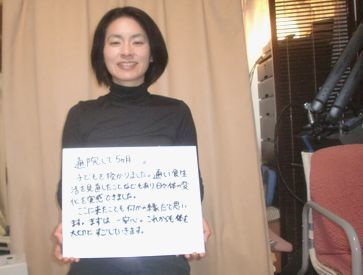 通院して5ヶ月 。
子どもを授かりました。通い食生
活を見直したことなどもあり自分の体の変
化を実感できました。
ここに来たことも何かの縁だと思い
ます。まずは一安心。これからも体を
大切にすごしていきます。